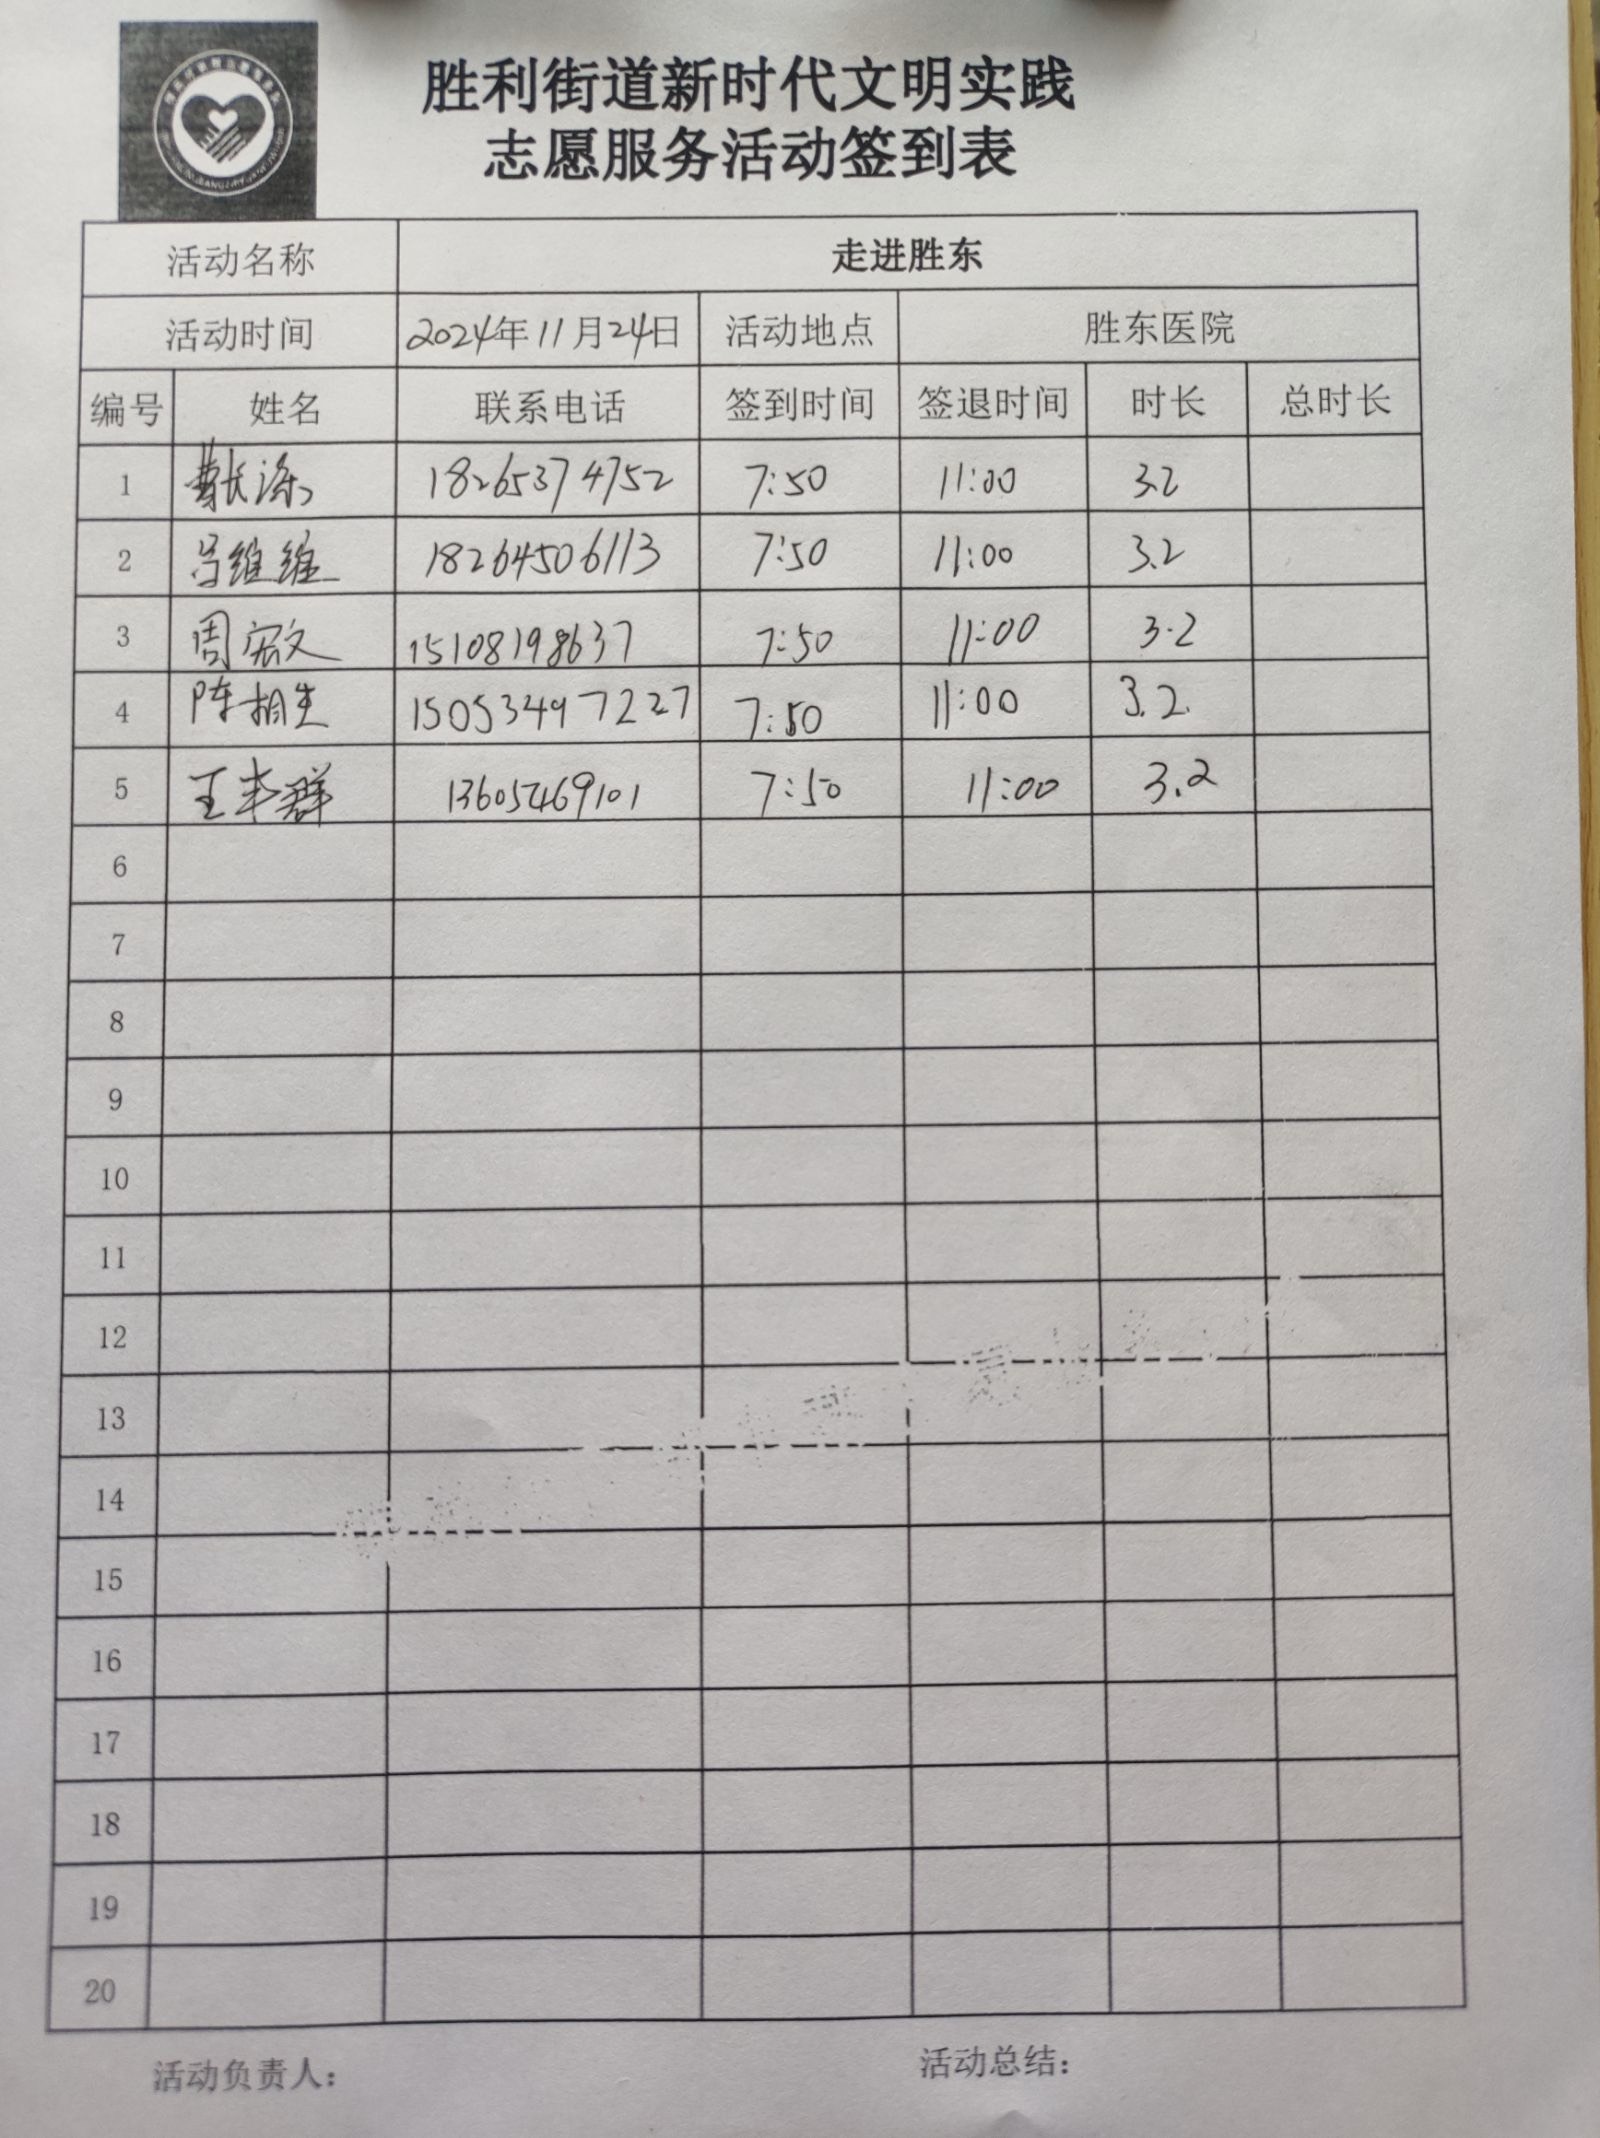 胜利街道新时代文明实践
志愿服务活动签到表
活动名称 走进胜东
活动时间 2024年11月24日 活动地点 胜东医院
编号 姓名 联系电话 签到时间 签退时间 时长 总时长
1 18265374752 7:50 11:00 3.2
2 吕维维 18264506113 7:50 11:00 3.2
3 周宏文 15108198637 7:50 11:00 3.2
4 陈相生 15053497227 7:50 11:00 3.2.
5 王丰群 13605469101 7:50 11:00 3.2
6
7
8
9
10
11
12
13
14
15
16
17
18
19
20
活动负责人： 活动总结：